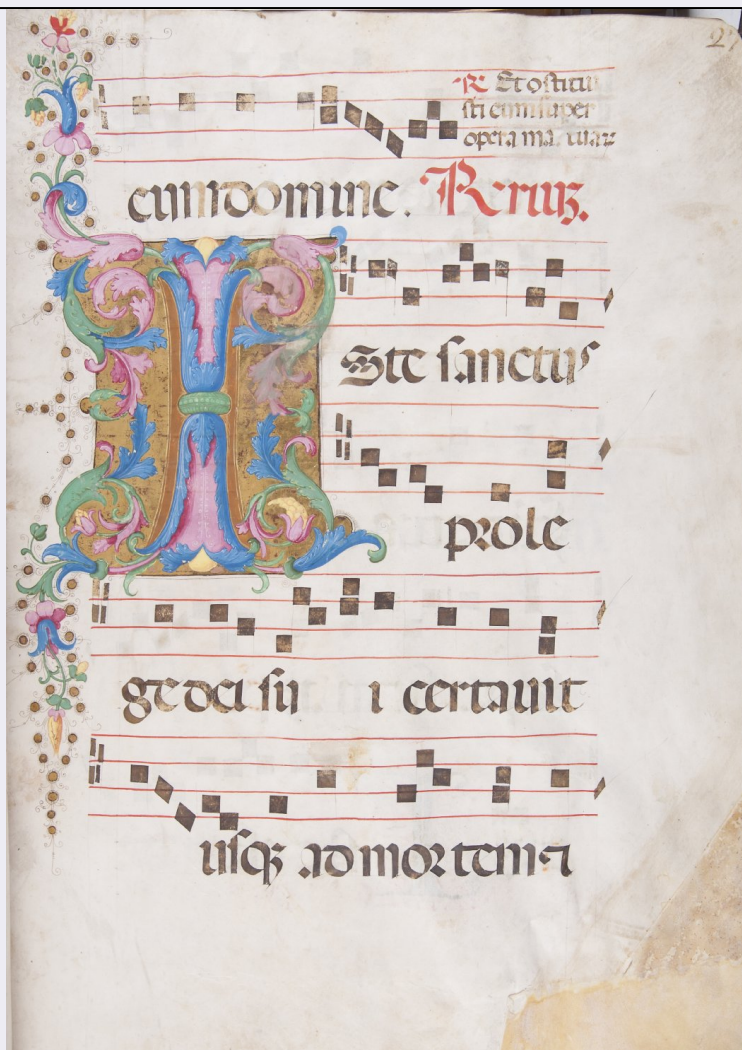 ℟ Et ostitui
sti eum super
opera ma tuaꝝ
eum domine. Rerūz.
Iste sanctus
prole
ge dei sui i certauit
usqꝫ ad mortem ⁊